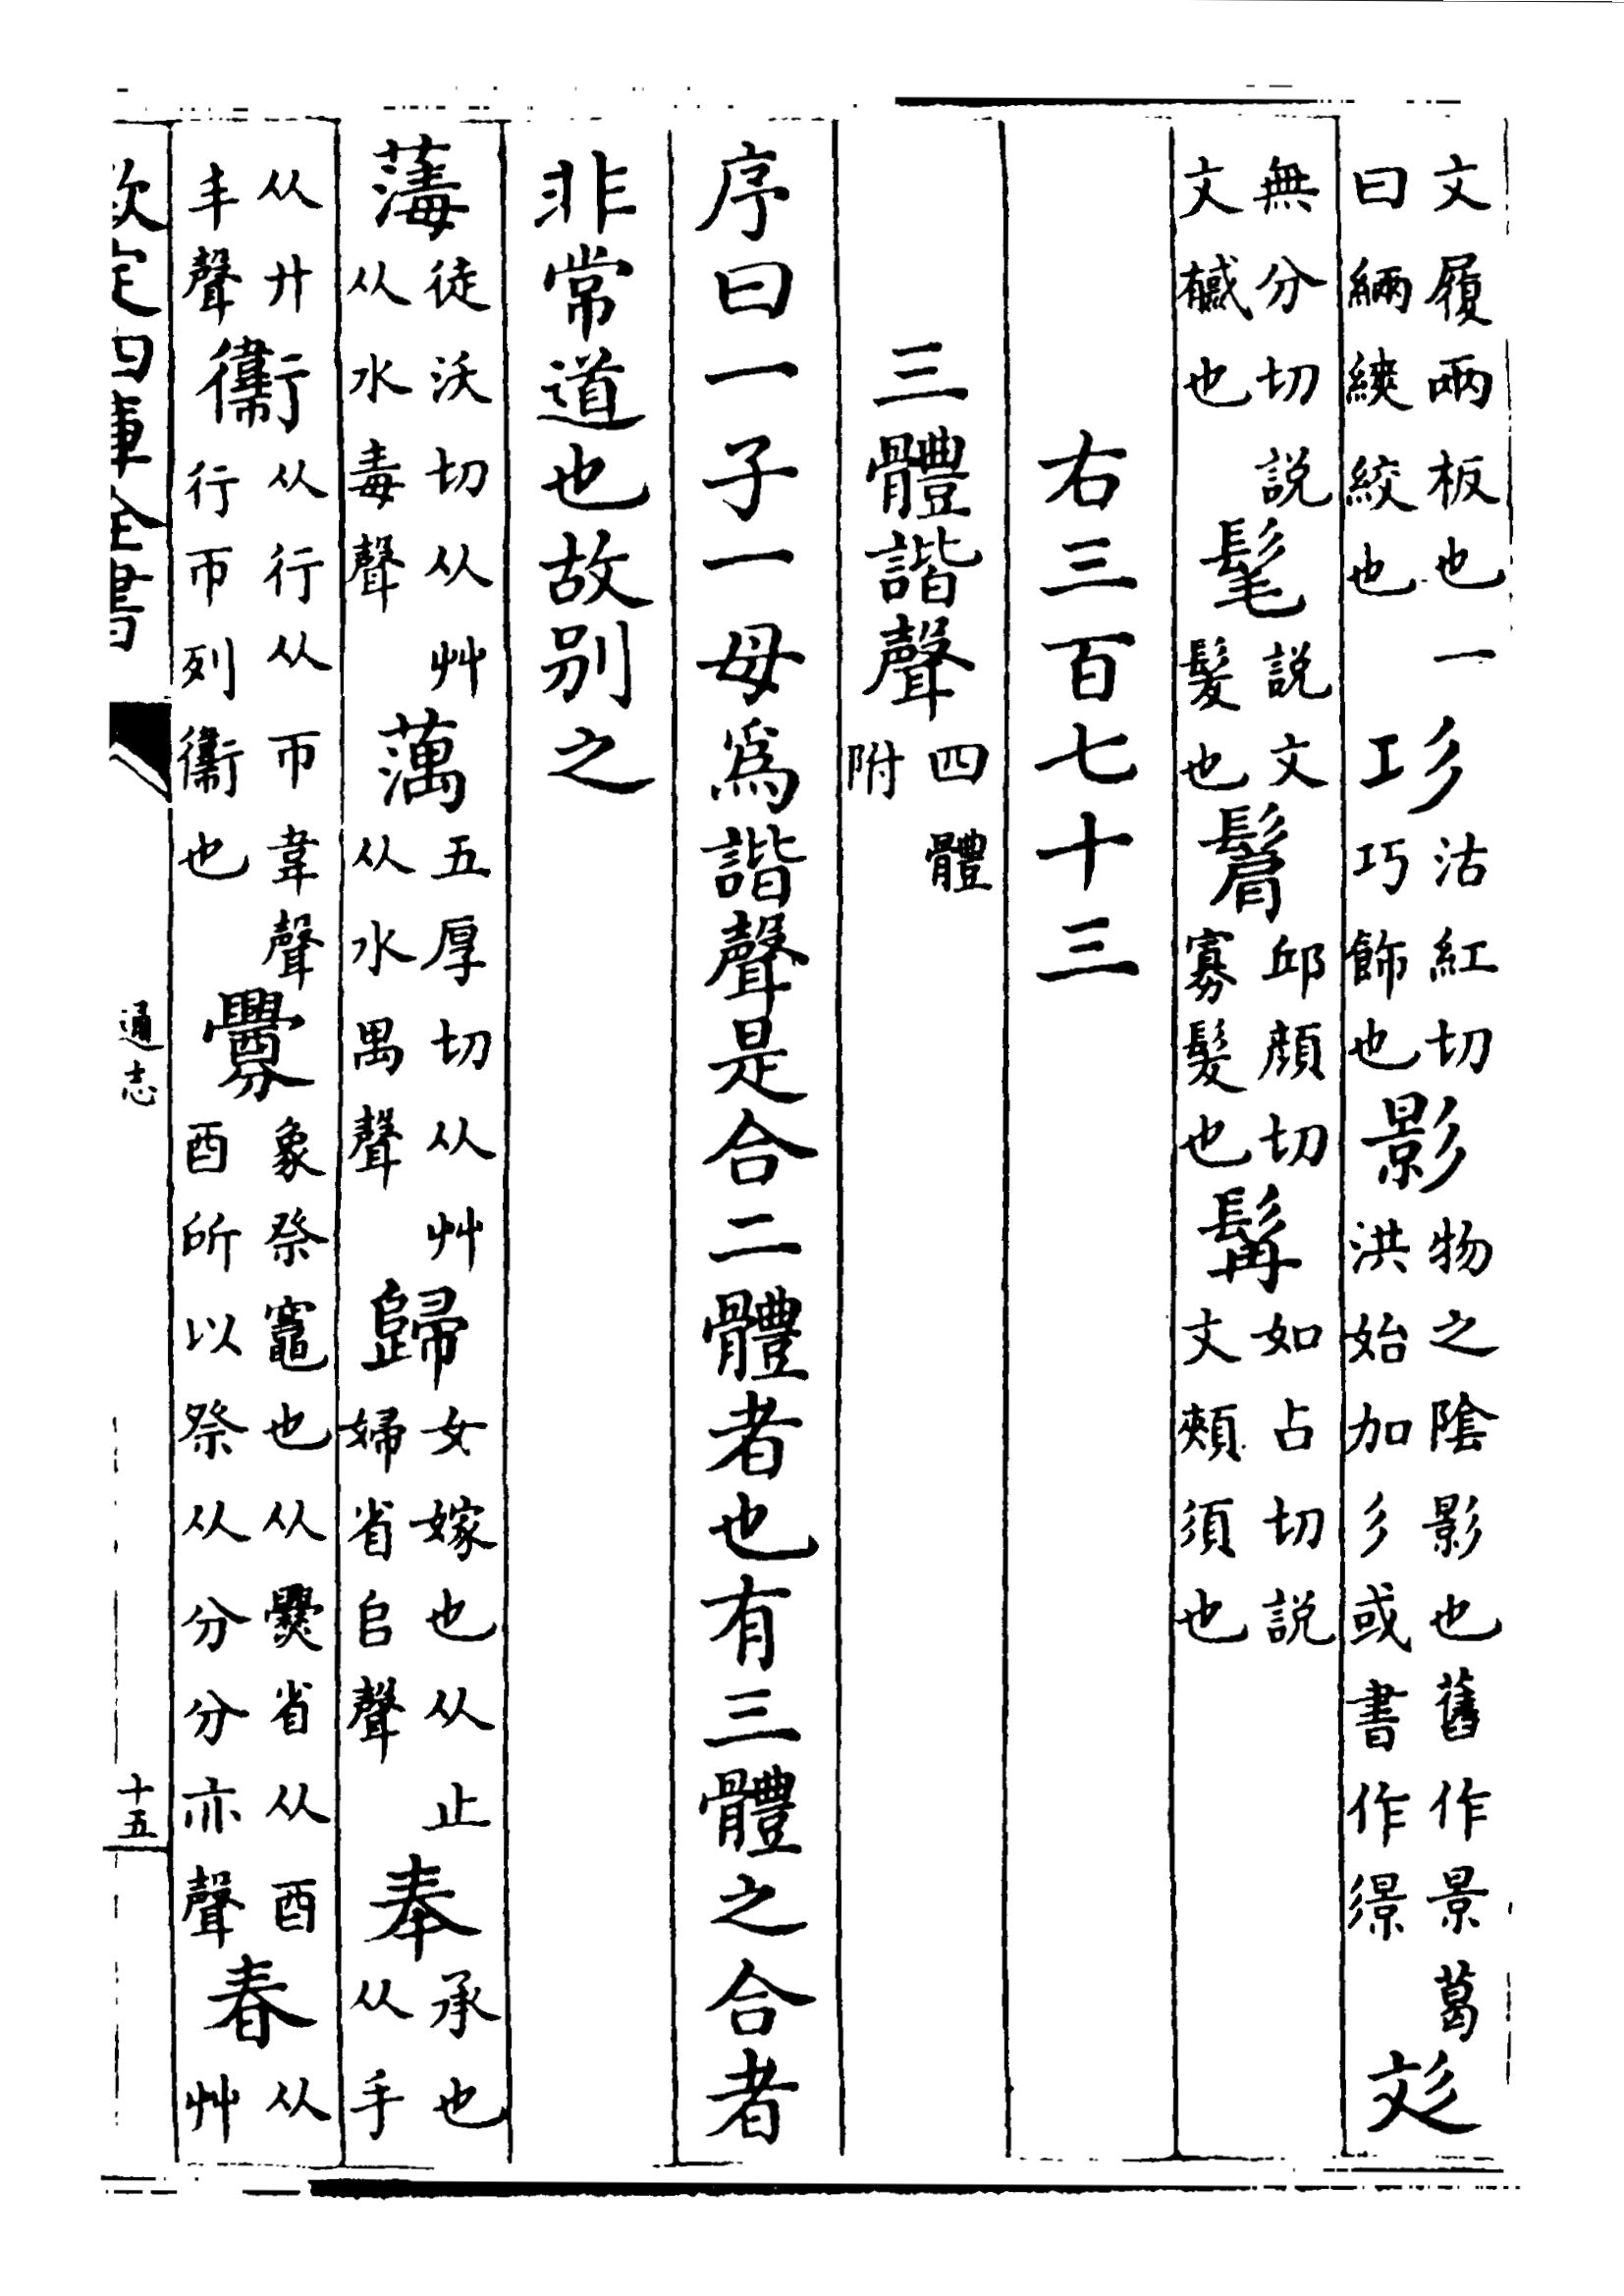 文履兩板也一曰緉緛絞也㣉沽紅切巧飾也影物之陰影也舊作景葛洪始加彡或書作㬌彣
無分切説文㦰也髦説文髮也鬜邱顔切寡髮也髯如占切説文頰須也
右三百七十三
三體諧聲四體附
序曰一子一母爲諧聲是合二體者也有三體之合者
非常道也故别之
薄徒沃切从艸从水毒聲澫五厚切从艸从水禺聲歸女嫁也从止婦省𠂤聲奉承也从手
从廾丰聲衞从行从帀韋聲行帀列衞也釁象祭竈也从爨省从酉酉所以祭从分分亦聲春从艸
欽定四庫全書
通志
十五